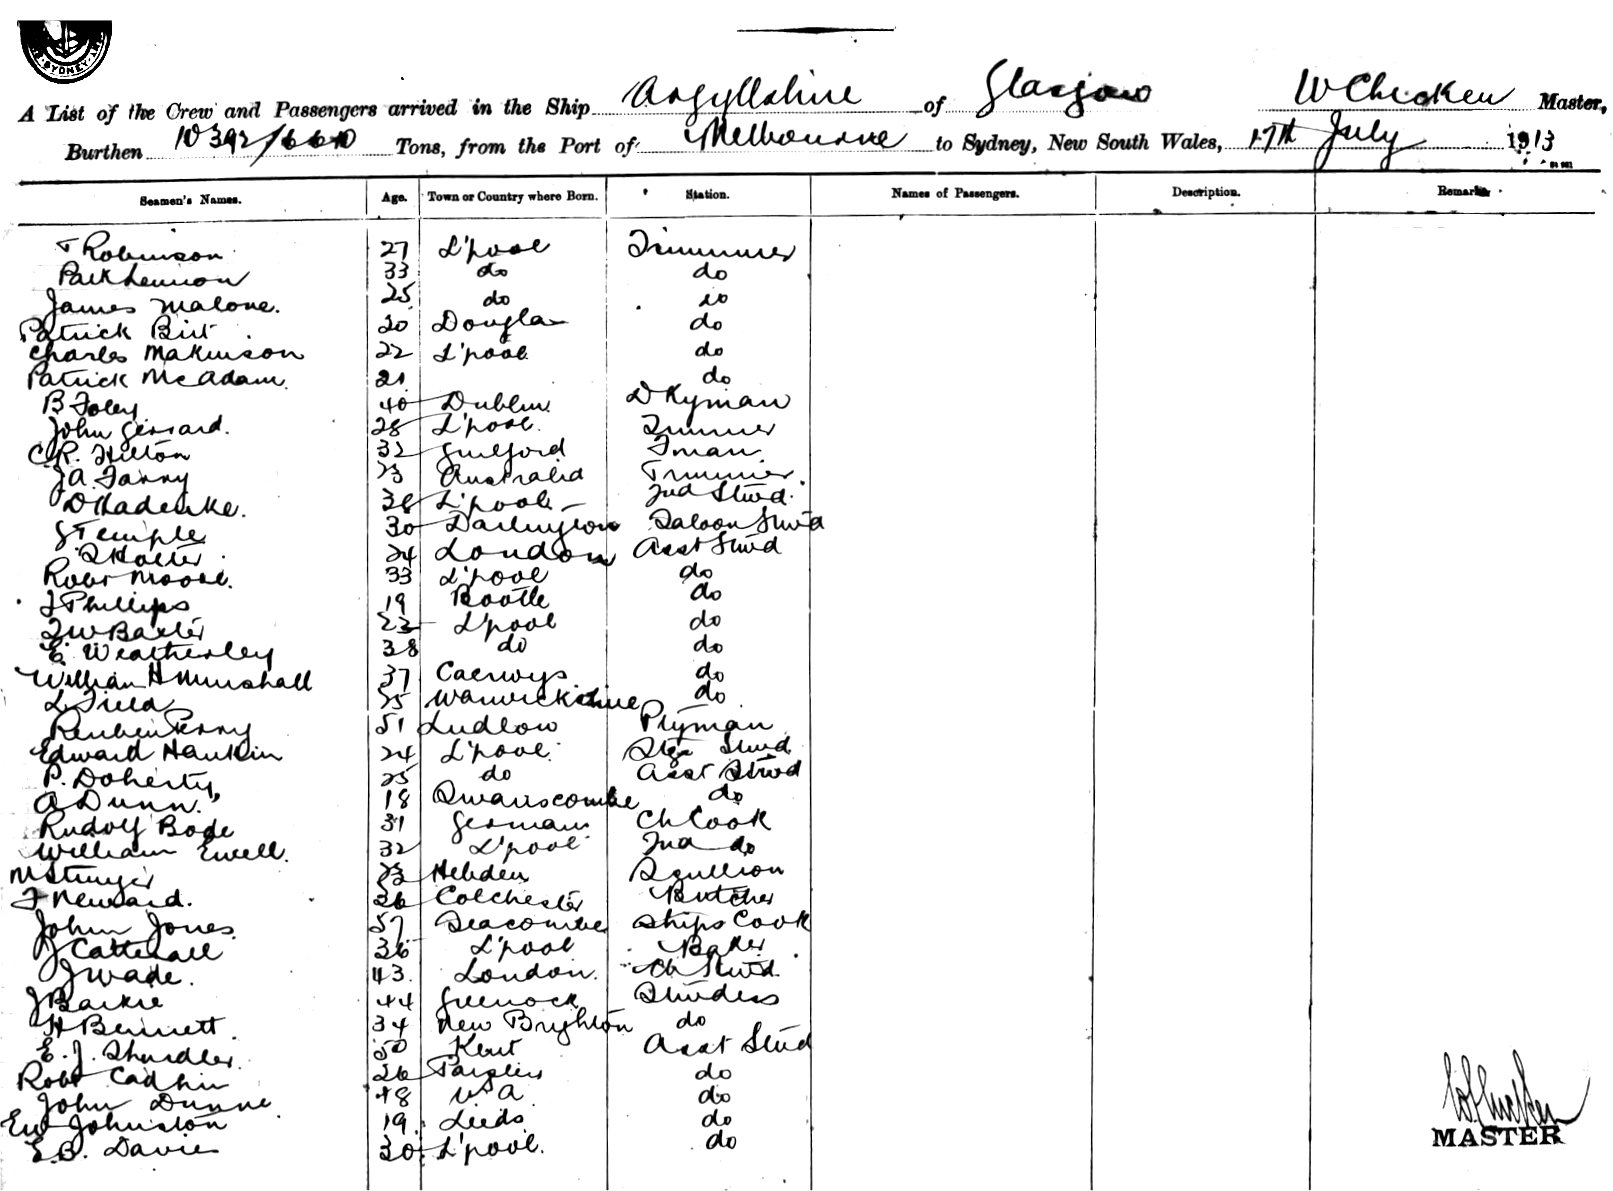 SYDNEY
A List of the Crew and Passengers arrived in the Ship Argyllshire of Glasgow W Chicken Master,
Burthen 10392/6610 Tons, from the Port of Melbourne to Sydney, New South Wales, 17th July 1913
Seamen's Names. Age. Town or Country where Born. Station. Names of Passengers. Description. Remarks
T Robinson 27 L'pool Trimmer
Patk Lennon 33 do do
James Malone. 25 do do
Patrick Birt 20 Dougla do
Charles Makinson 22 L'pool do
Patrick McAdam. 21 do
B Foley 40 Dublin D Kyman
John Gerrard. 28 L'pool. Trimmer
C.R. Hilton 32 Guilford Fman.
JA. Fanny 23 Australia Trimmer.
D Hadenke. 38 L'pool 2nd Stwd.
G Temple 30 Darlington Saloon Stwd
24 London Asst Stwd
Robt Moore. 33 L'pool do
J Phillips 19 Bootle do
J W Baxter 23 L'pool do
E. Weatherley 38 do do
William H Munshall 37 Caerwys do
L Field 25 Warwickshire do
Reuben Perry 51 Ludlow Ptyman
Edward Hankin 24 L'pool. Stge Stwd
P. Doherty, 25 do Asst Stwd
A Dunn. 18 Swanscombe do
Rudolf Bode 31 German Ch Cook
William Ewell. 32 L'pool 2nd do
M Stringer 23 Hebden Scullion
F Newsard. 26 Colchester Butcher
John Jones 57 Seacombe Ships Cook
J Catterall 36 L'pool Baker
J Wade. 43. London. Ch Stwd.
J Barkie 44 Greenock Stwdess
H Bennett. 34 New Brighton do
E. J. 50 Kent Asst Stwd
Robt 26 Paisley do
John Dunne 48 USA do
EW Johnston 19. Leeds do
E.B. Davies 30 L'pool. do
W Chicken
MASTER